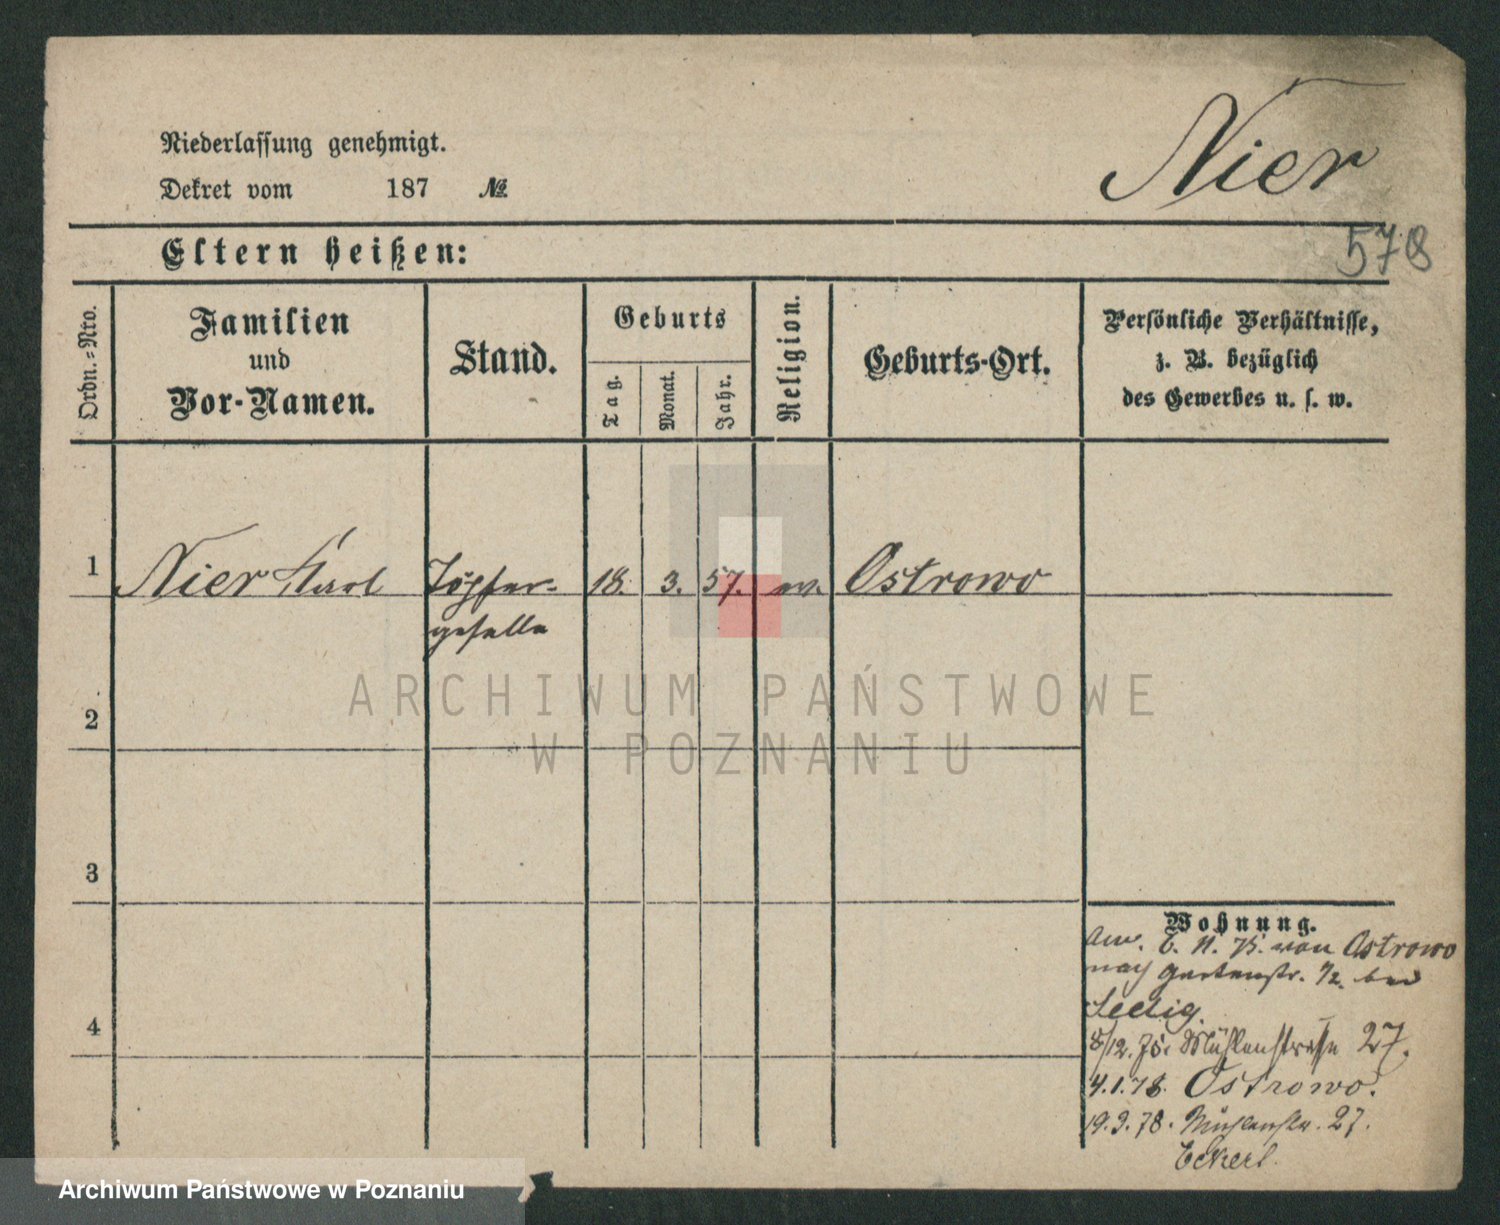 Nier
Niederlassung genehmigt.
Dekret vom 187 №
578
Eltern heißen:
Ordn.=Nro.
Familien
und
Vor-Namen.
Stand.
Geburts
Tag.
Monat.
Jahr.
Religion.
Geburts-Ort.
Persönliche Verhältnisse,
z. B. bezüglich
des Gewerbes u. s. w.
1 Nier Karl Töpfer- 18. 3. 57. ev. Ostrowo
geselle
2
3
4
Wohnung.
von Ostrowo
nach Gartenstr. bei
8/12. Mühlenstraße 27.
4.1.78. Ostrowo.
19.3.78. Mühlenstr. 27.
Eckert.
ARCHIWUM PAŃSTWOWE
W POZNANIU
Archiwum Państwowe w Poznaniu